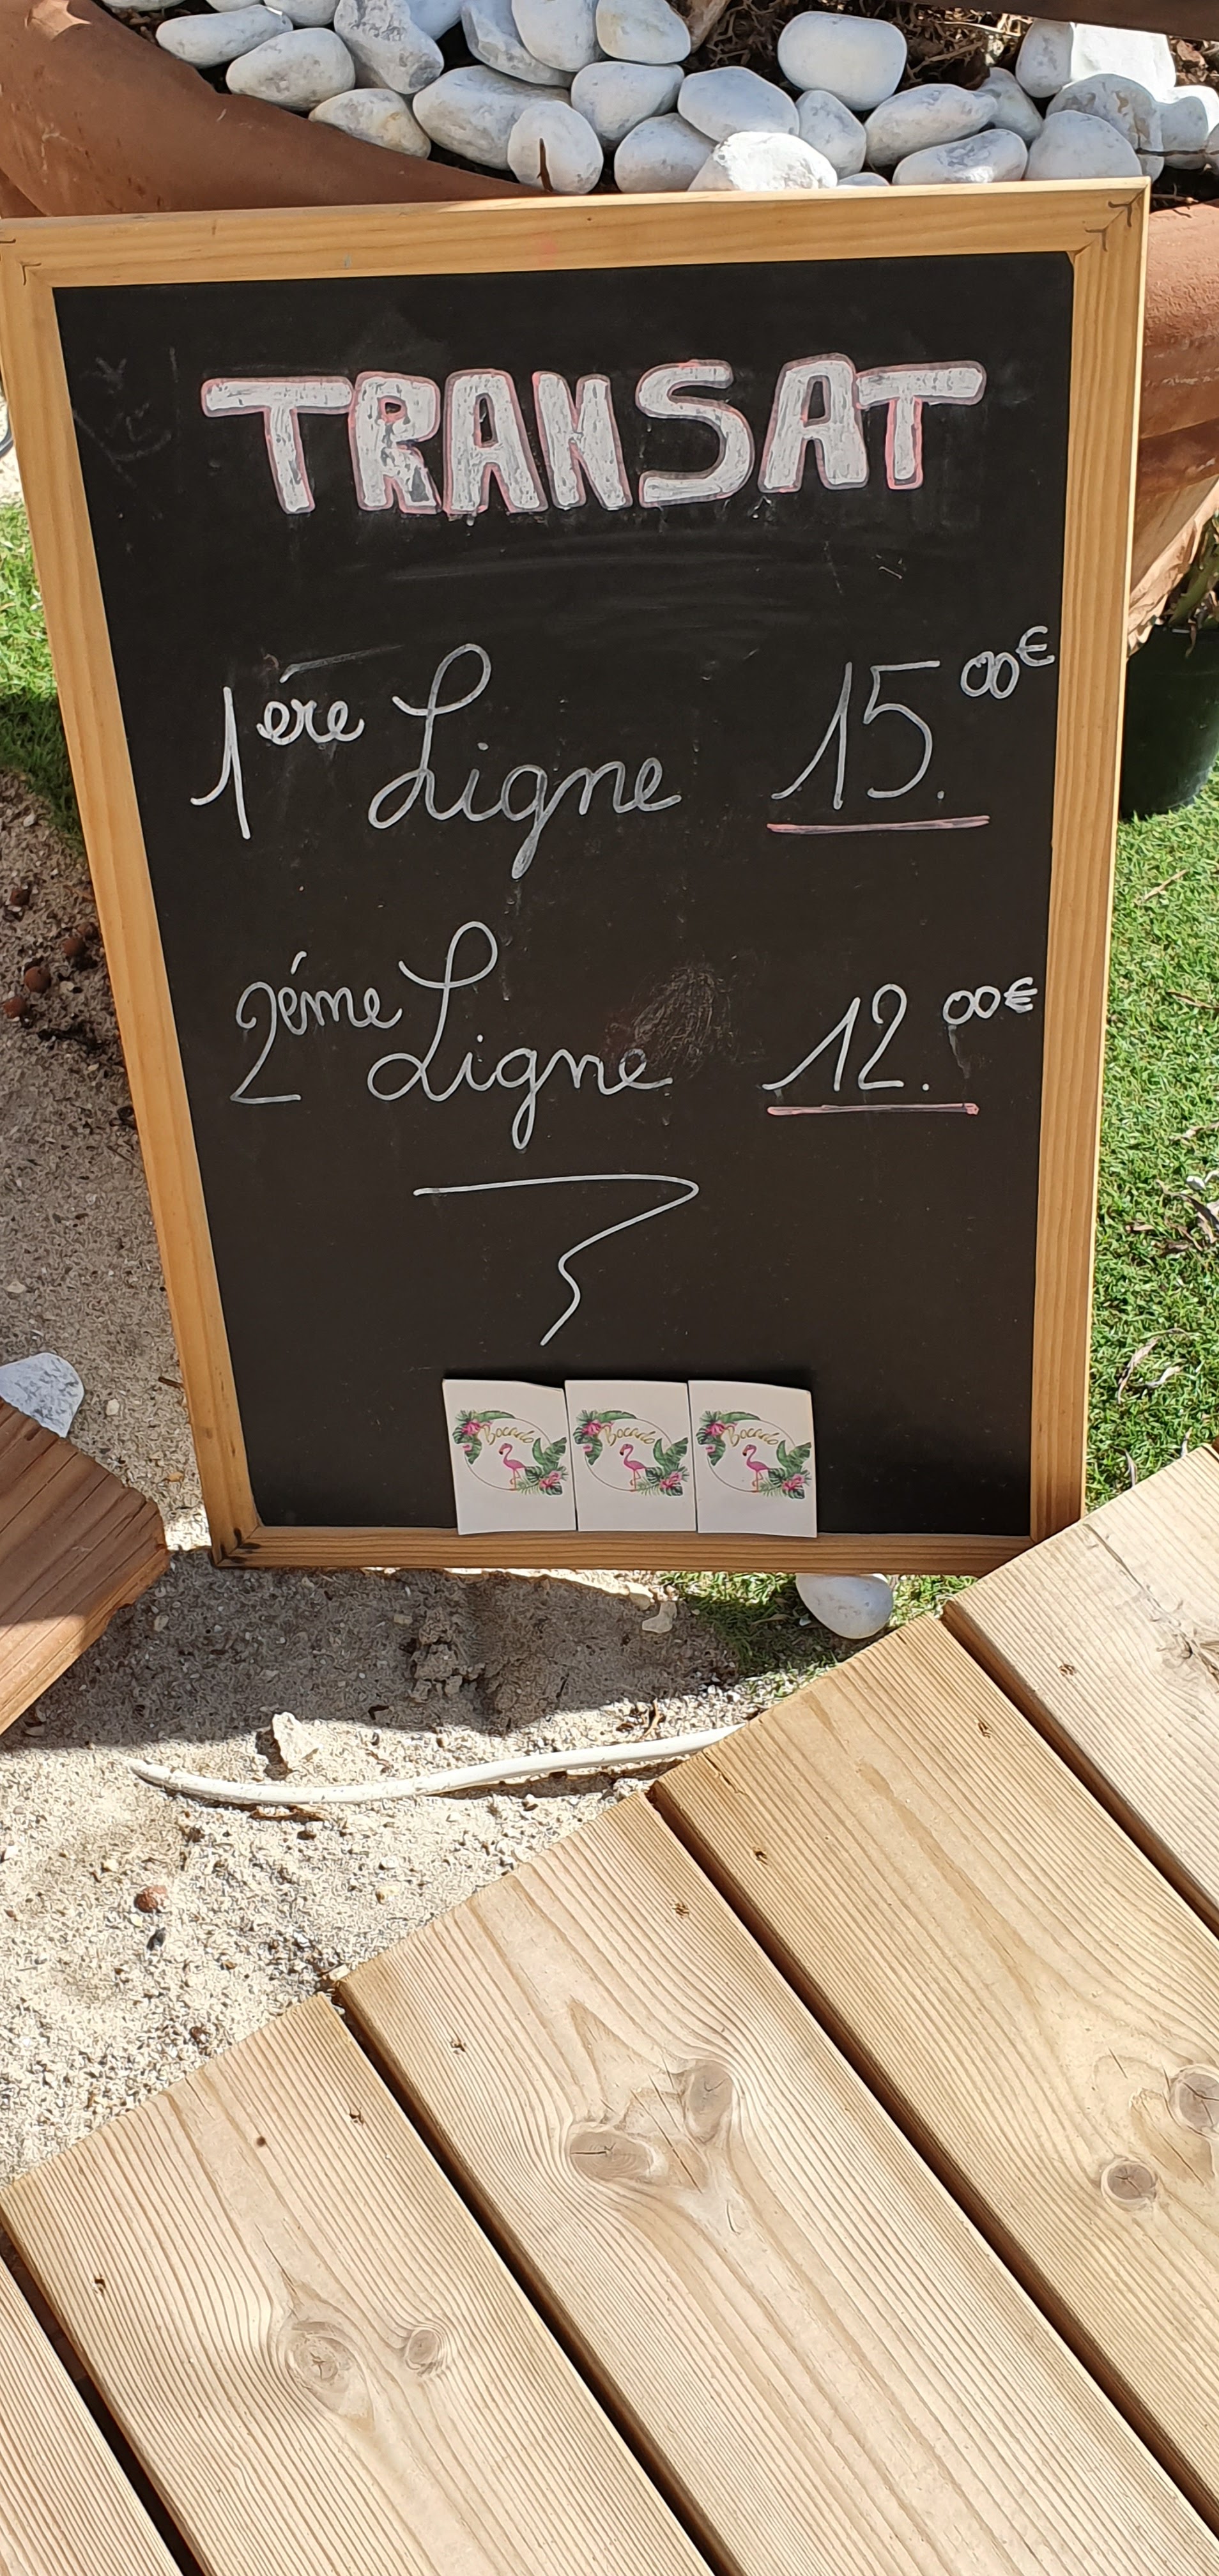 TRANSAT
1ère Ligne 15.00€
2éme Ligne 12.00€
Bocado Bocado Bocado